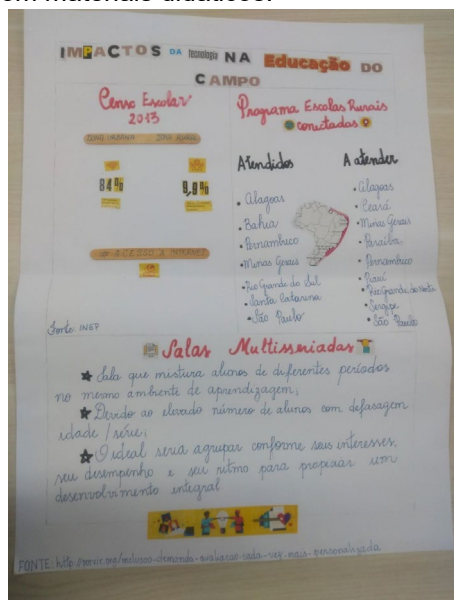 com materiais didáticos.
IMPACTOS DA tecnologia NA Educação DO
CAMPO
Censo Escolar
2013
ZONA URBANA ZONA RURAL
84%
% ACESSO À INTERNET
Fonte INEP
Programa Escolas Rurais
conectadas
Atendidos
• Alagoas
• Bahia
• Pernambuco
• Minas Gerais
• Rio Grande do Sul
• Santa Catarina
• São Paulo
A atender
• Alagoas
• Ceará
• Minas Gerais
• Paraíba
• Pernambuco
• Piauí
• Rio Grande do Norte
• Sergipe
• São Paulo
Salas Multisseriadas
Sala que mistura alunos de diferentes períodos
no mesmo ambiente de aprendizagem;
Devido ao elevado número de alunos com defasagem
idade / série;
O ideal seria agrupar conforme seus interesses,
seu desempenho e seu ritmo para propiciar um
desenvolvimento integral
FONTE: http://porvir.org/inclusao-demanda-avaliacao-cada-vez-mais-personalizada